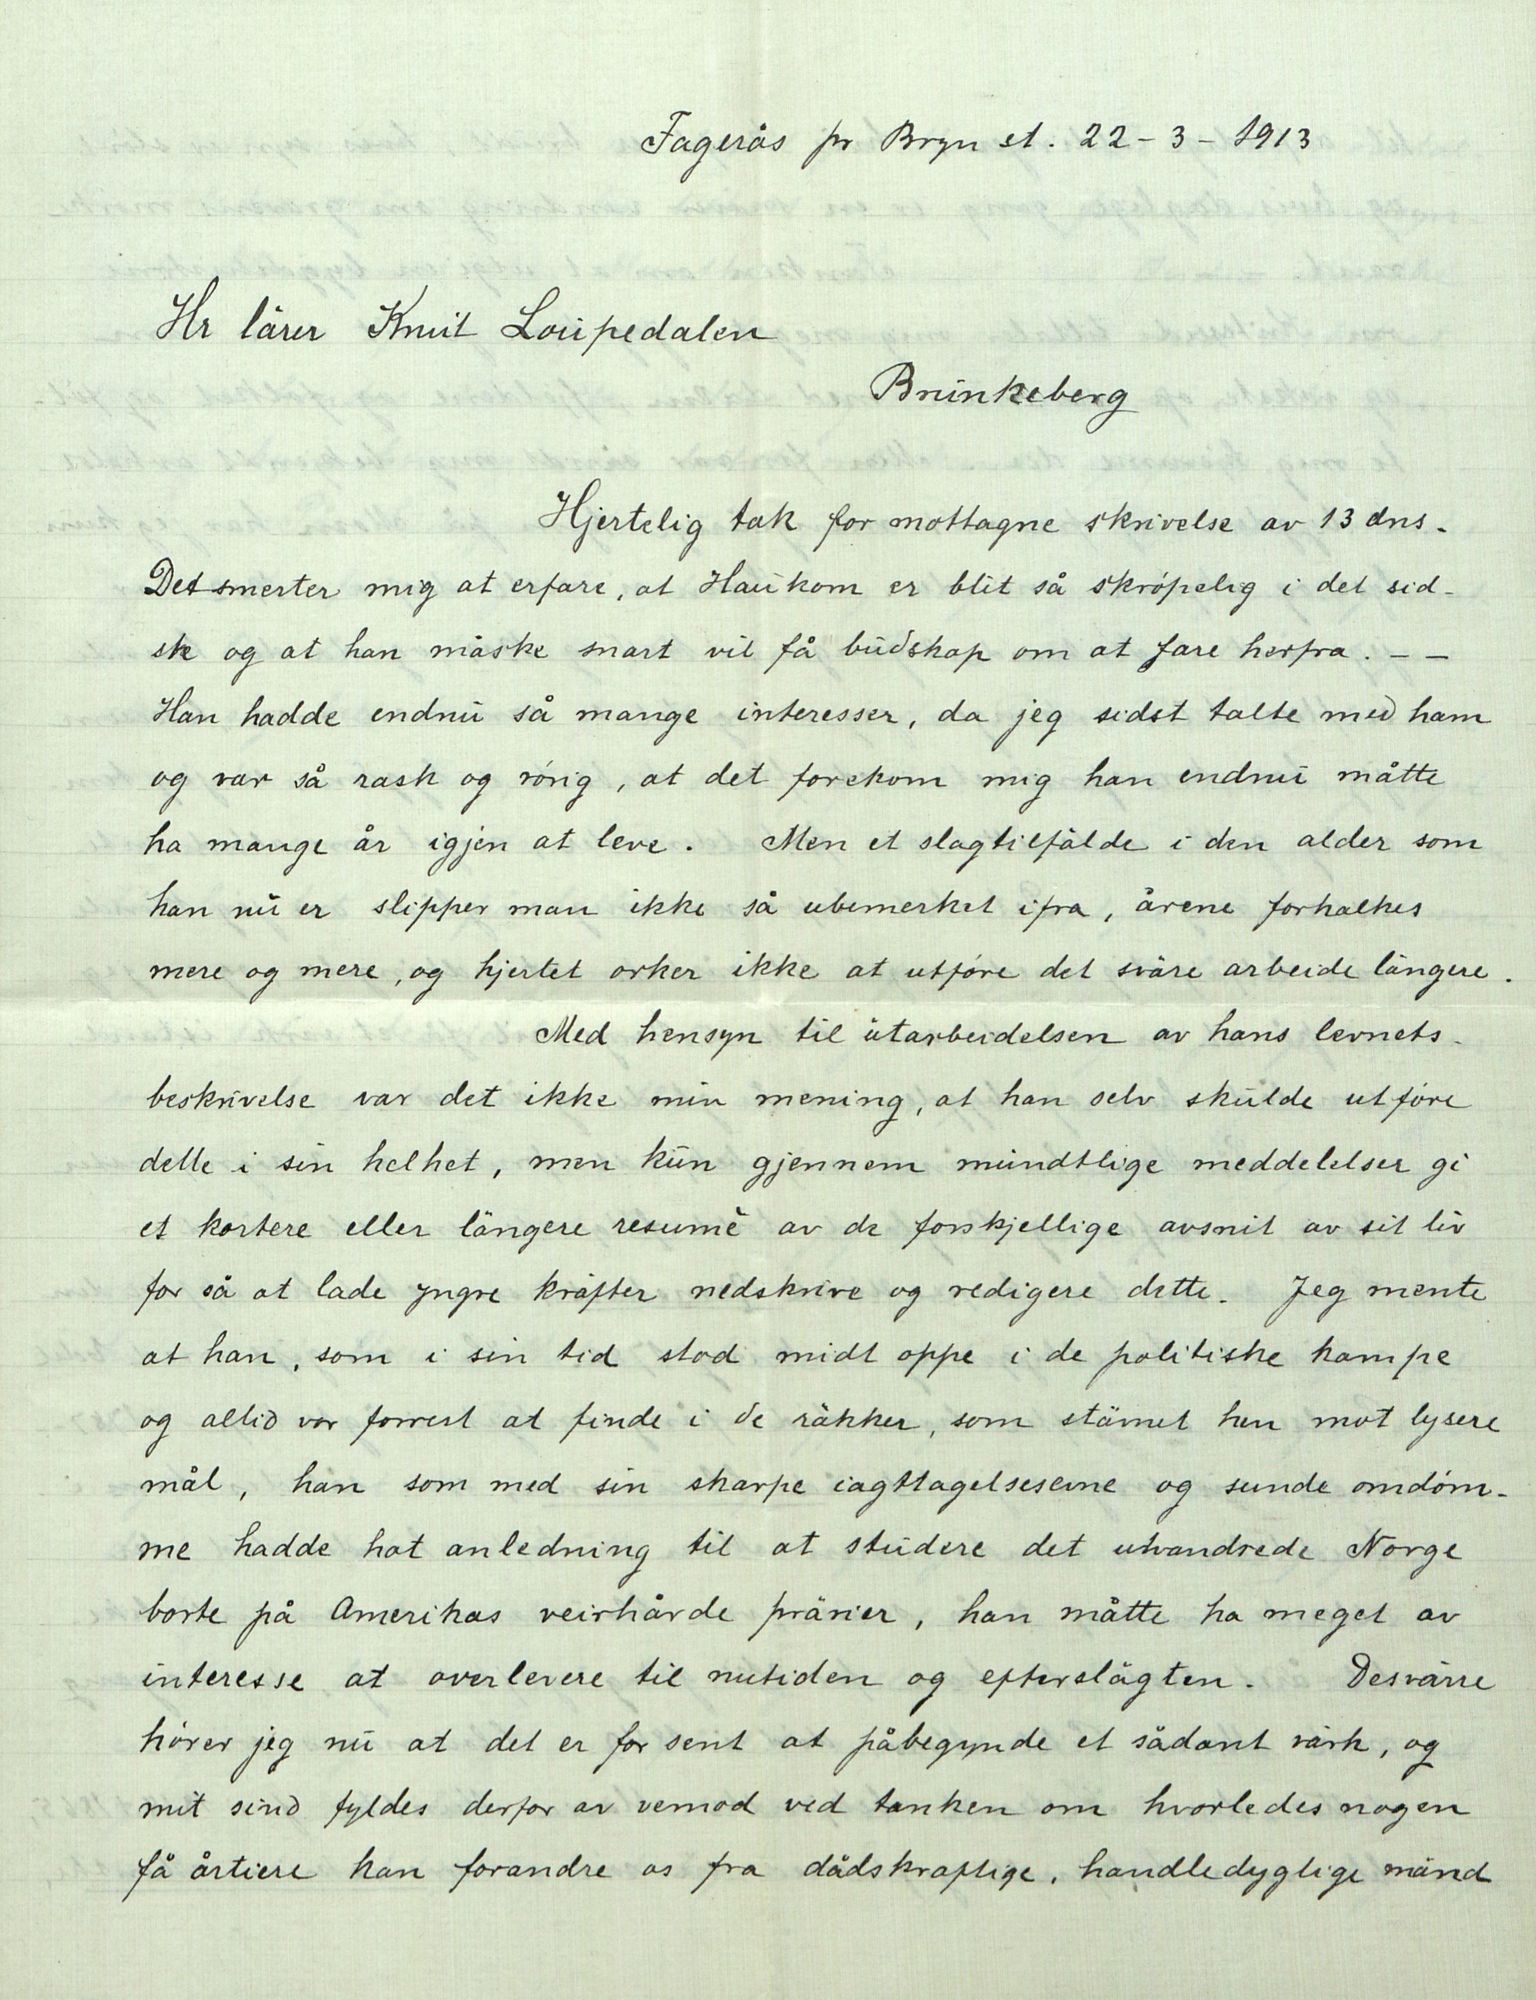 Fagerås pr Bryn st. 22-3-1913
Hr lärer Knut Loupedalen
Brunkeberg
Hjertelig tak for mottagne skrivelse av 13 dns.
Det smerter mig at erfare, at Haukom er blit så skrøpelig i det sid-
ste og at han måske snart vil få budskap om at fare herfra. — —
Han hadde endnu så mange interesser, da jeg sidst talte med ham
og var så rask og rørig, at det forekom mig han endnu måtte
ha mange år igjen at leve. Men et slagtilfälde i den alder som
han nu er slipper man ikke så ubemerket ifra, årene forkalkes
mere og mere, og hjertet orker ikke at utføre det sväre arbeide längere.
Med hensyn til utarbeidelsen av hans levnets-
beskrivelse var det ikke min mening, at han selv skulde utføre
dette i sin helhet, men kun gjennem mundtlige meddelelser gi
et kortere eller längere resumè av de forskjellige avsnit av sit liv
for så at lade yngre kräfter nedskrive og redigere dette. Jeg mente
at han, som i sin tid stod midt oppe i de politiske kampe
og altid var forrest at finde i de räkker, som stävnet hen mot lysere
mål, han som med sin skarpe iagttagelsesevne og sunde omdøm-
me hadde hat anledning til at studere det utvandrede Norge
borte på Amerikas veirhårde prärier, han måtte ha meget av
interesse at overlevere til nutiden og efterslägten. Desvärre
hører jeg nu at det er for sent at påbegynde et sådant värk, og
mit sind fyldes derfor av vemod ved tanken om hvorledes nogen
få årtiere kan forandre os fra dådskraftige, handledygtige mänd